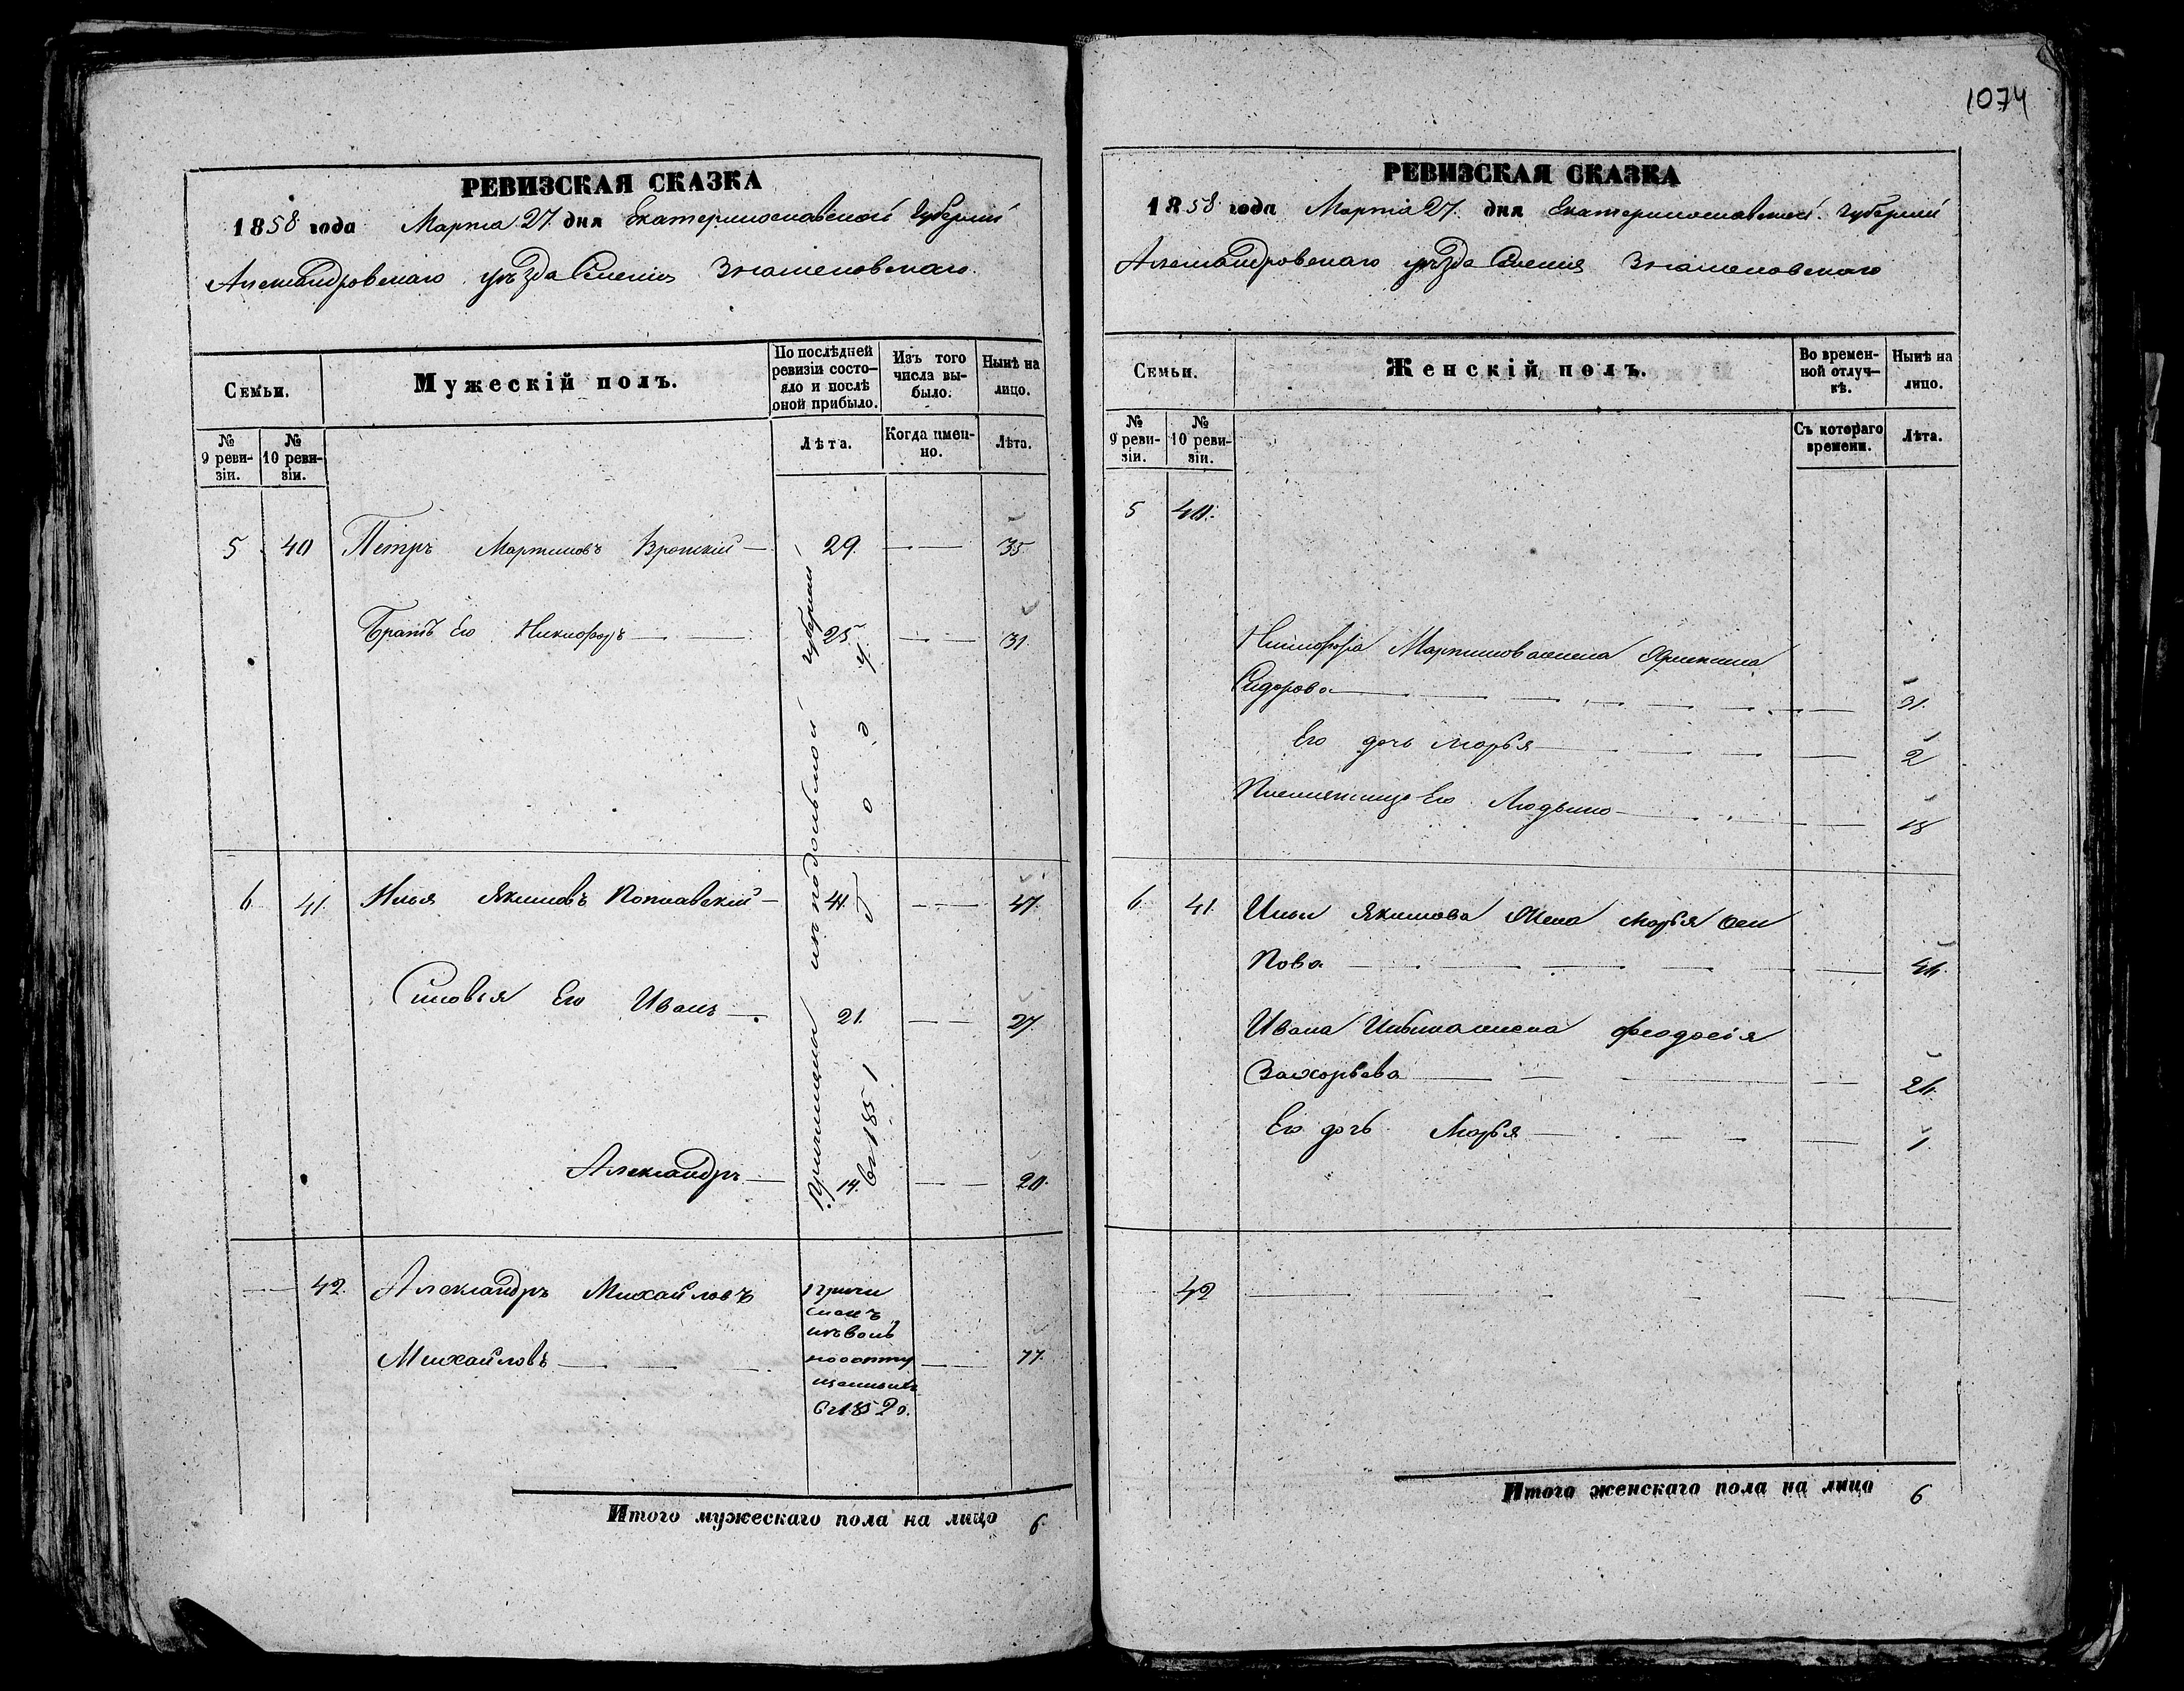 1074
РЕВИЗСКАЯ СКАЗКА
1858 года Марта 27 дня Екатеринославской Губернии
Александровскаго уѣзда Селенія Знаменовскаго.
Семьи.
Мужескій полъ.
По послѣдней ревизіи состояло и послѣ оной прибыло.
Изъ того числа выбыло.
Нынѣ на лицо.
№ 9 ревизіи.
№ 10 ревизіи.
Лѣта.
Когда именно.
Лѣта.
5 40 Петръ Мартиновъ 29. — — 35
Братъ Его Никифоръ — — 25 — — 31.
6 41. Илья Якимовъ Поплавскій — 41. — — 47.
Синовья Его Иванъ — 21. — — 27
Александръ — 14. — — 20.
Причислены изъ подольской губерніи
въ 1851 г о д у.
— 42. Александръ Михайловъ
Михайловъ — — — 77.
причи
сленъ
изъ воль
ноотпу
щенныхъ
въ 1852 г.
Итого мужескаго пола на лицо 6.
РЕВИЗСКАЯ СКАЗКА
1858 года Марта 27. дня Екатеринославской Губерніи
Александровскаго уѣзда Селенія Знаменовскаго
Семьи.
Женскій полъ.
Во временной отлучкѣ.
Нынѣ на лицо.
№ 9 ревизіи.
№ 10 ревизіи.
Съ котораго времени.
Лѣта.
5 40.
Никифора Мартинова жена
Сидорова — — — 31.
Его дочь Марья — — — 2
Племянница Его — — — 18
6 41. Ильи Якимова Жена Марья Оси
пова — — — 44.
Ивана Ильина жена Феодосія
Захарьева — — — 24.
Его дочь Марья — — — 1.
42 — — —
Итого женскаго пола на лицо 6